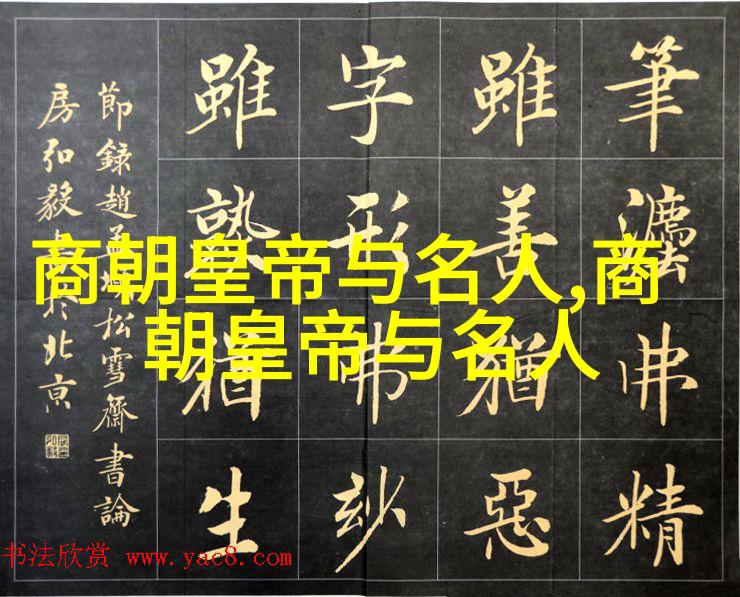 筆灋弗精
雖善猶惡
字形弗妙
雖熟猶生
節錄趙孟頫松雪齋書論
房弘毅書於北亰
商朝皇帝与名人,商
朝皇帝与名人
书法欣赏 www.yac8.com